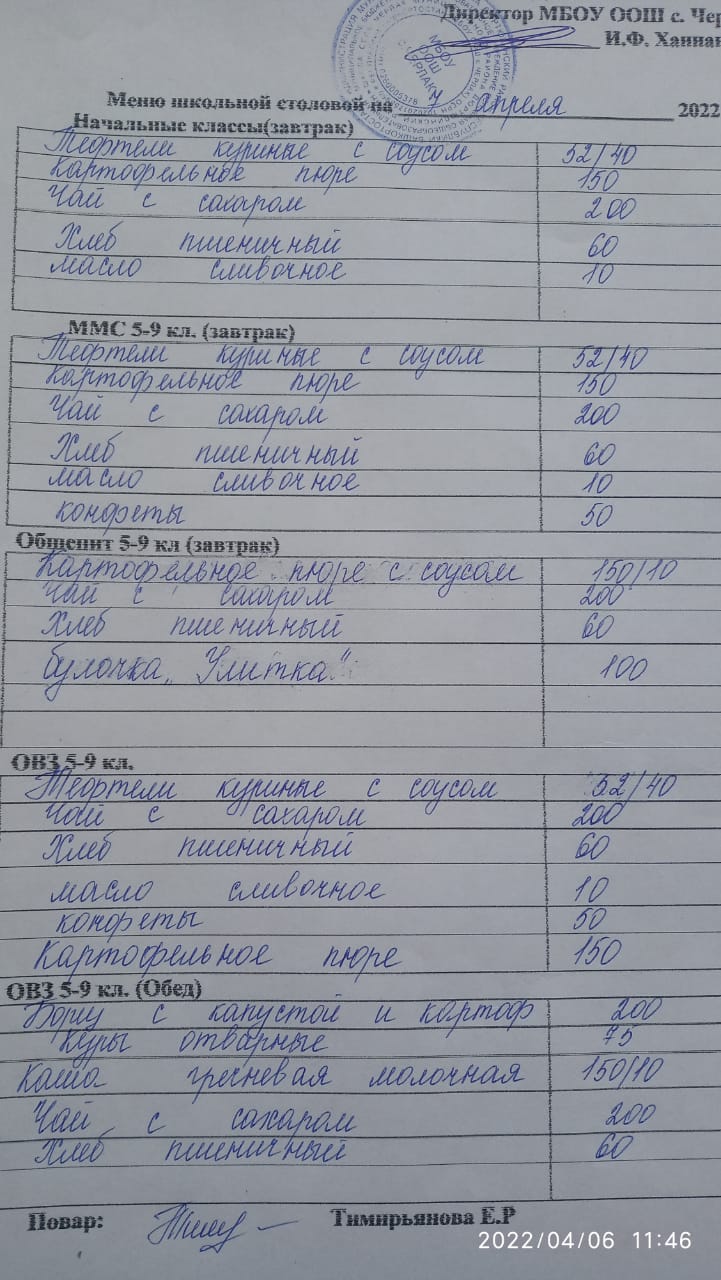 Директор МБОУ ООШ с. Чер
И.Ф. Ханнан
МБОУ
ООШ
с. ЧЕРЛАК
Меню школьной столовой на 7 апреля 2022
Начальные классы(завтрак)
Тефтели куриные с соусом 52/40
Картофельное пюре 150
Чай с сахаром 200
Хлеб пшеничный 60
масло сливочное 10
ММС 5-9 кл. (завтрак)
Тефтели куриные с соусом 52/40
Картофельное пюре 150
Чай с сахаром 200
Хлеб пшеничный 60
масло сливочное 10
конфеты 50
Общепит 5-9 кл (завтрак)
Картофельное пюре с соусом 150/10
Чай с сахаром 200
Хлеб пшеничный 60
булочка „Улитка." 100
ОВЗ 5-9 кл.
Тефтели куриные с соусом 52/40
Чай с сахаром 200
Хлеб пшеничный 60
масло сливочное 10
конфеты 50
Картофельное пюре 150
ОВЗ 5-9 кл. (Обед)
Борщ с капустой и картоф 200
Куры отварные 75
Каша гречневая молочная 150/10
Чай с сахаром 200
Хлеб пшеничный 60
Повар: Тимирьянова Е.Р
2022/04/06 11:46